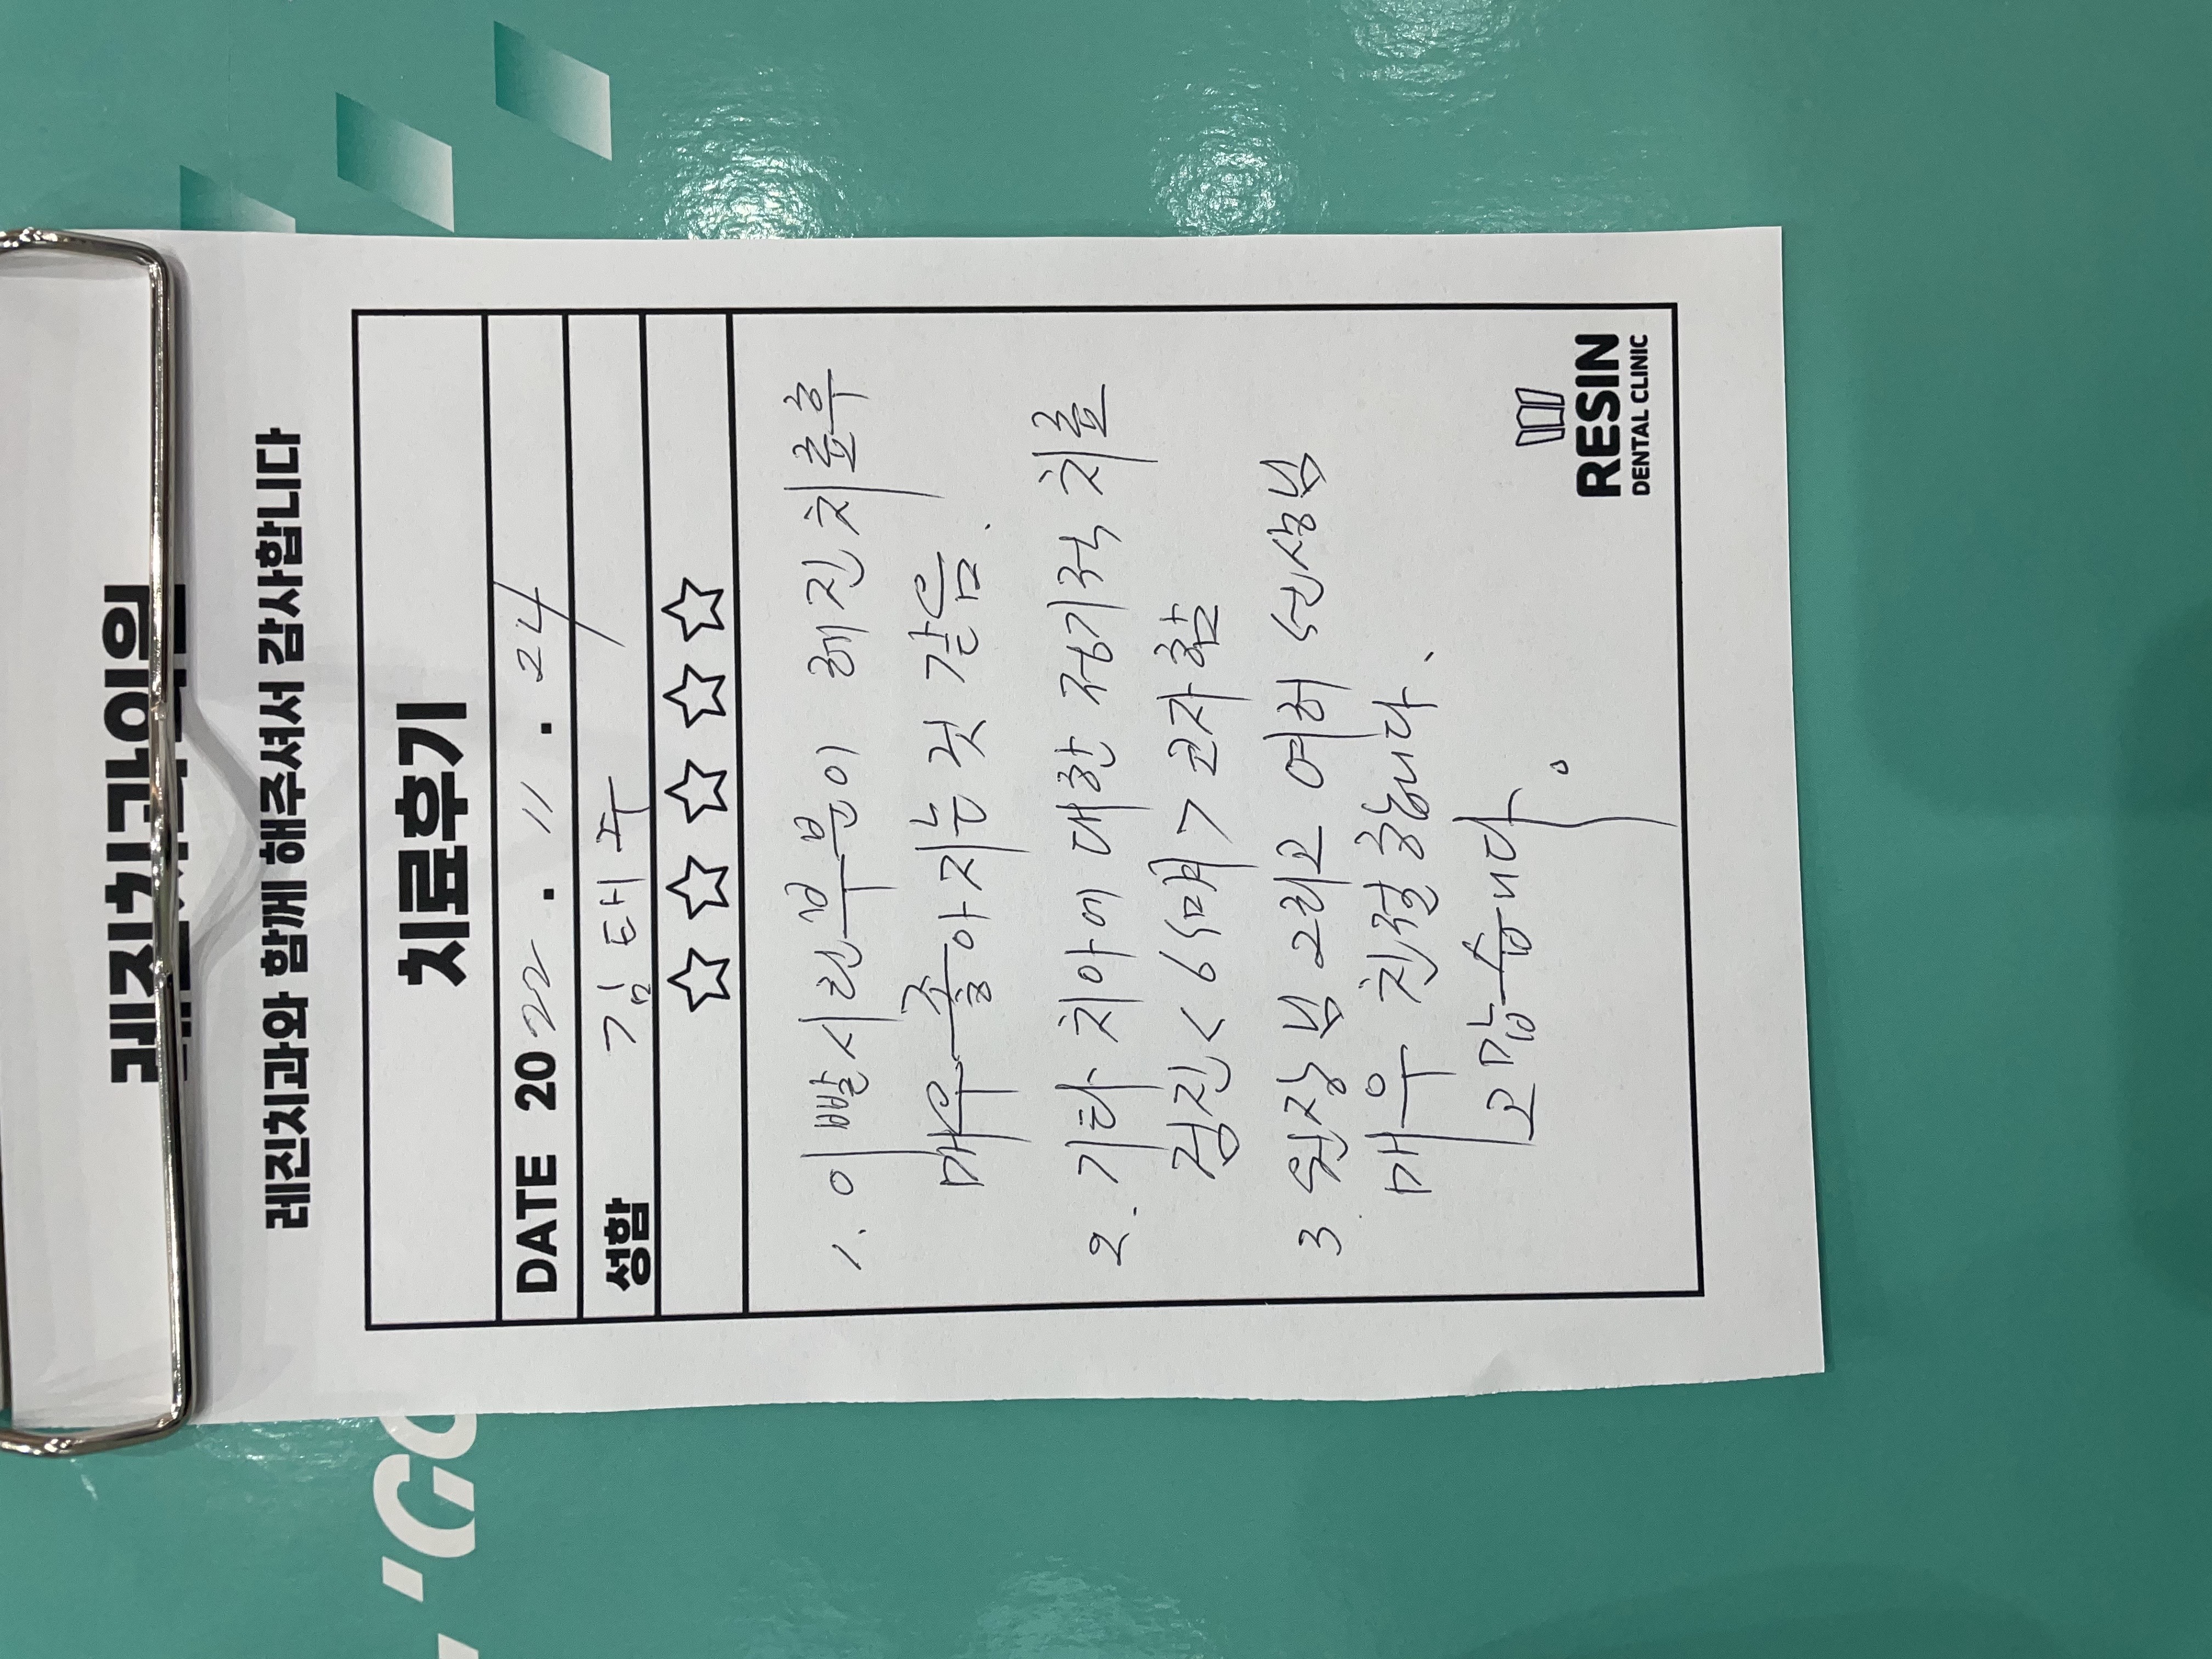 레진치과의원
레진치과와 함께 해주셔서 감사합니다
치료후기
DATE 2022 . 11 . 24
성함 김태주
☆☆☆☆☆
1. 이빨시린부분이 레진치료후
매우 좋아지는 것 같음.
2. 기타 치아에 대한 정기적 치료
검진 <6개월> 코자함
3. 원장님 그리고 여러 선생님
매우 친절합니다.
고맙습니다.
RESIN
DENTAL CLINIC
'GC